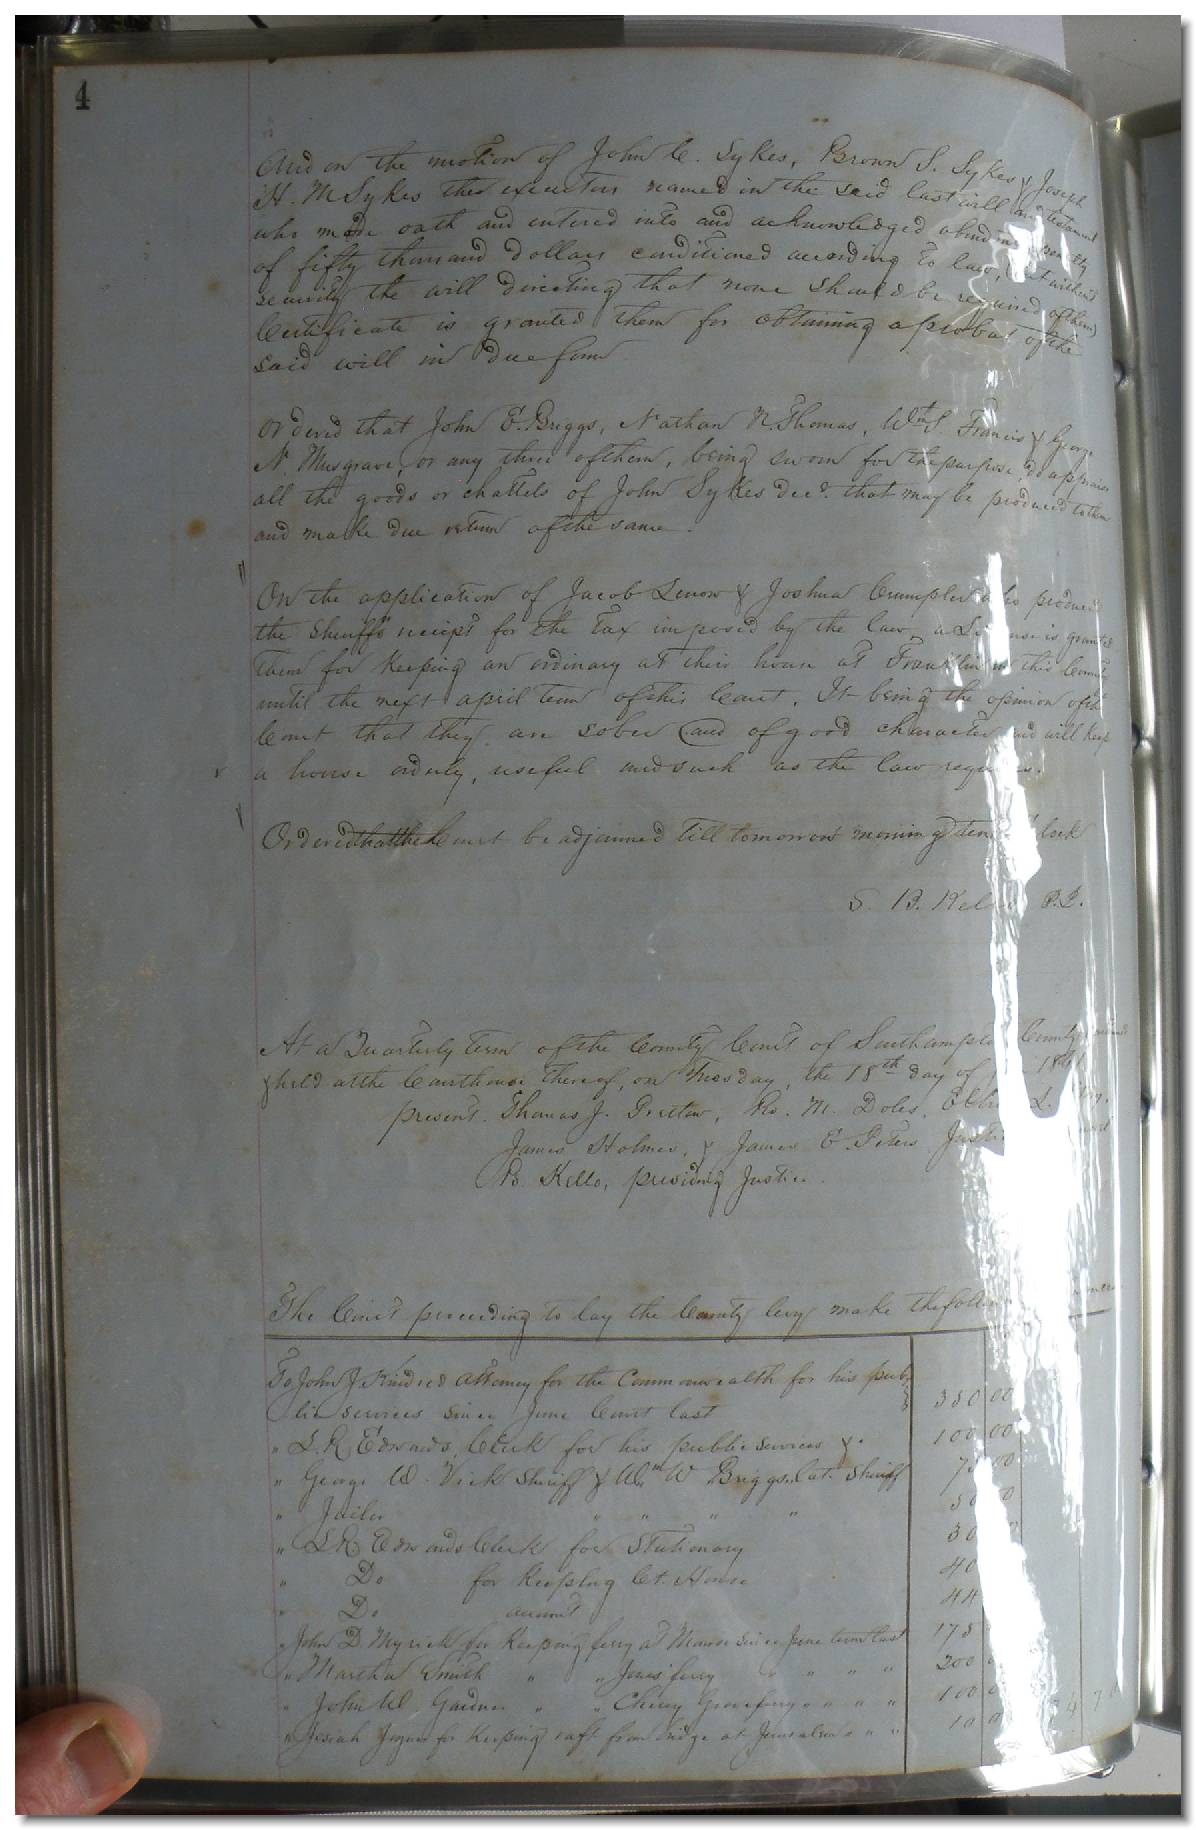 4
And on the motion of John C. Sykes, Brown S. Sykes & Joseph
H. M Sykes the executors named in the said last will and testament
who made oath and entered into and acknowledged a bond in penalty
of fifty thousand Dollars conditioned according to law, but without
security the will directing that none should be required of them
Certificate is granted them for obtaining a probat of the
said will in due form
Ordered that John E. Briggs, Nathan N. Thomas, Wm S. Francis & George
N. Musgrave, or any three of them, being sworn for the purpose, do appraise
all the goods or chattels of John Sykes decd. that may be produced to them
and make due return of the same.
On the application of Jacob Lenow & Joshua Crumpler who produced
the Sheriffs receipt for the Tax imposed by the law, a License is granted
them for keeping an ordinary at their house at Franklin in this County
until the next april term of this Court. It being the opinion of the
Court that they are sober and of good character and will keep
a house orderly, useful and such as the law requires.
Ordered that the Court be adjourned till tomorrow morning ten o'clock
S. B. Kello P.J.
At a Quarterly term of the County Court of Southampton County
& held at the Courthouse thereof, on Tuesday, the 18th day of 1861
present. Thomas J. Pretlow, Ro. M. Doles,
James Holmes, & James E. Peters
B. Kello, presiding Justice.
The Court proceeding to lay the County levy make the following
To John J. Kindred Attorney for the Commonwealth for his pub-
lic services since June Court last 350 00
" L. R. Edwards Clerk for his public services &. 100 00
" George W. Vick Sheriff & Wm W Briggs Lat. Sheriff
" Jailor " " " " 50
" L. R. Edwards Clerk for Stationary 30
" Do for keeping Ct. House 40
" Do account 44
" John D Myrick for keeping ferry at Monroe since June term last 175
" Martha Smith " " Jones' ferry " " " " 200
" John W. Gardner " " Cherry Grove ferry " " " " 100
" Josiah for keeping raft from bridge at Jerusalem " " " 10